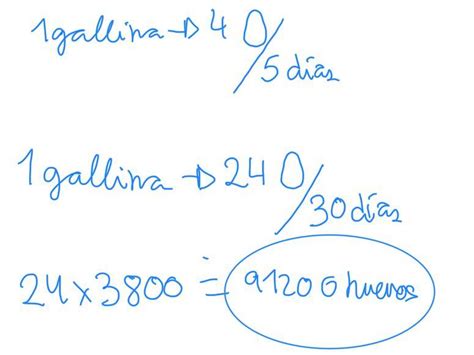 1 gallina → 4 0/5 días
1 gallina → 24 0/30 días
24 x 3800 = 91200 huevos